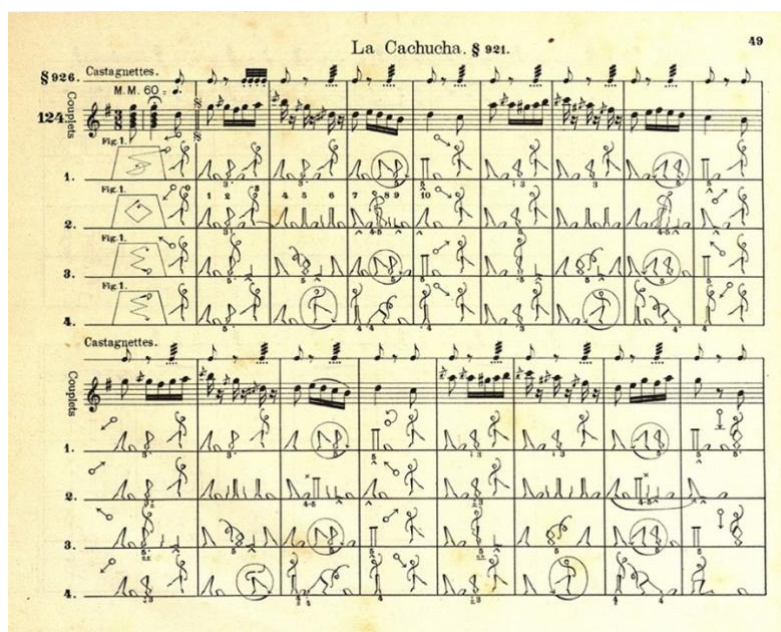 La Cachucha. § 921. 49
§ 926. Castagnettes.
M. M. 60 =
Couplets
124
Fig. 1.
1.
Fig. 1. 1 2 3 4 5 6 7 8 9 10
2.
Fig. 1.
3.
Fig. 1.
4.
Castagnettes.
Couplets
1.
2.
3.
4.